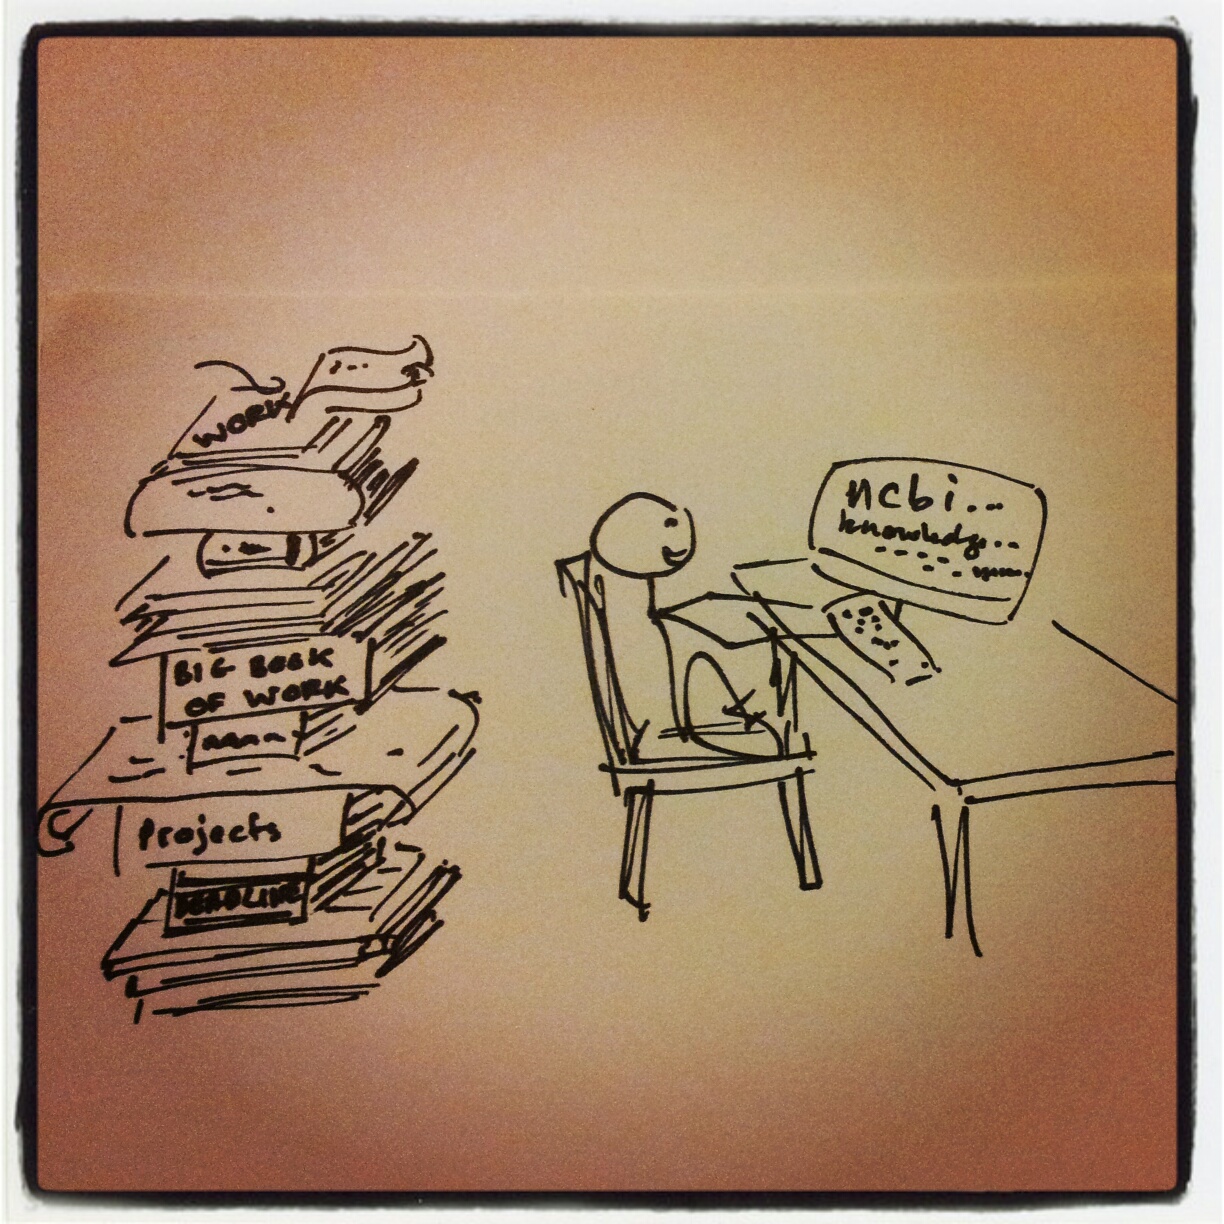 WORK
BIG BOOK
OF WORK
Projects
DEADLINE
ncbi...
knowledge...